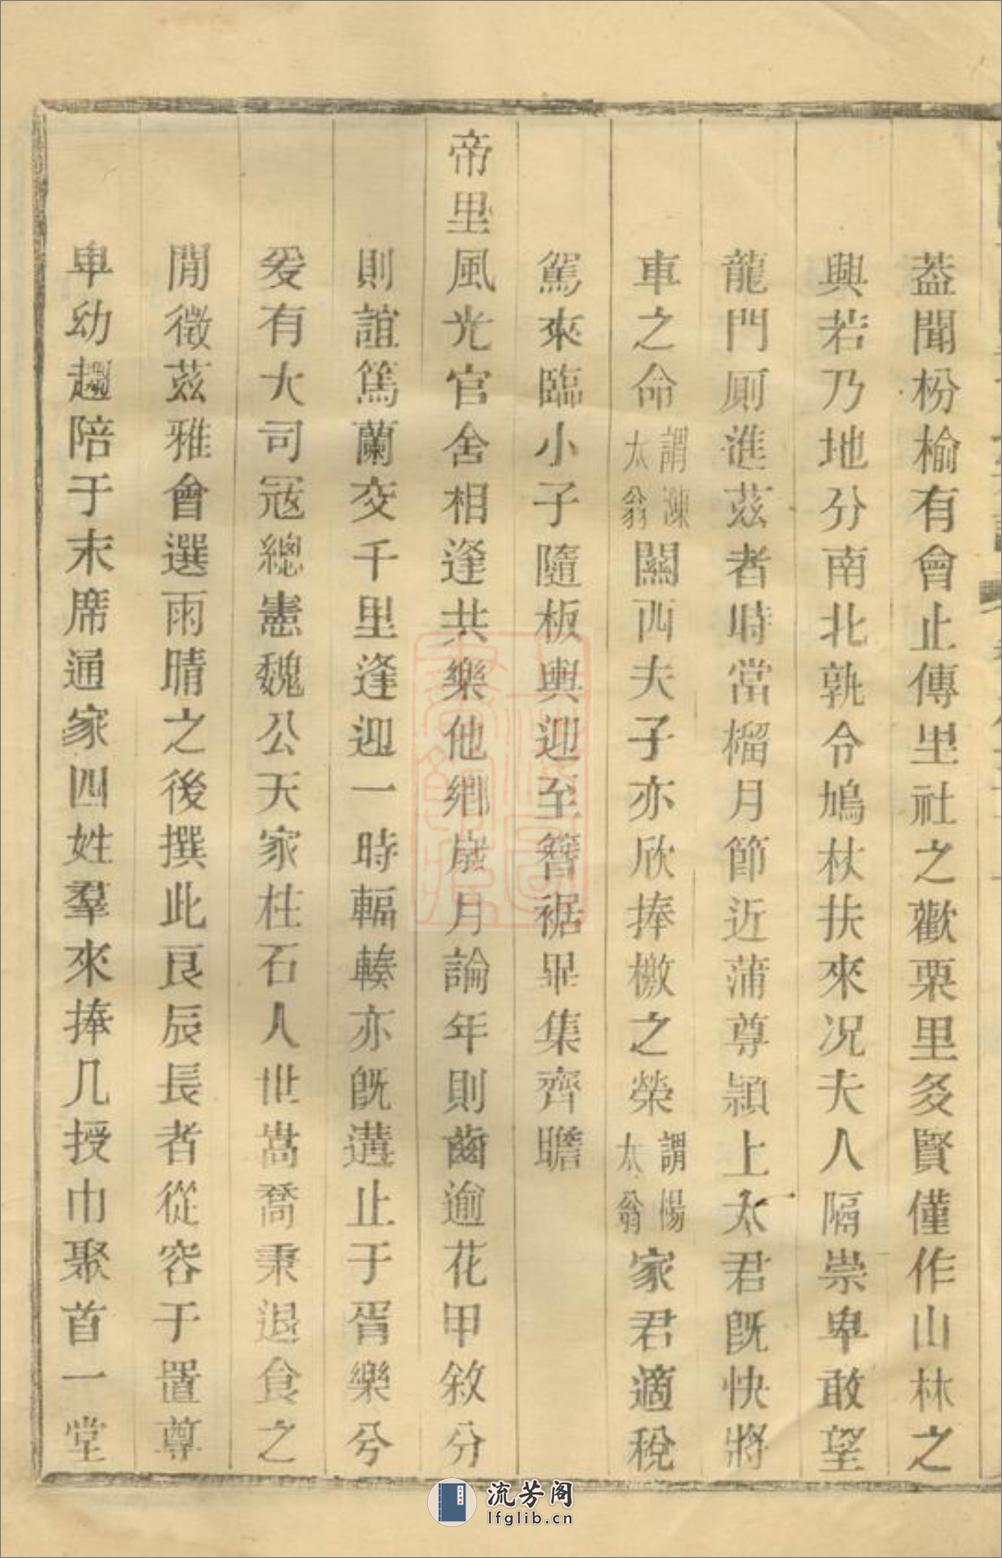 葢聞枌榆有會止傳里社之歡栗里多賢僅作山林之
興若乃地分南北孰令鳩杖扶來况夫人隔崇卑敢望
龍門厠進茲者時當榴月節近蒲尊穎上太君旣快將
車之命謂陳太翁關西夫子亦欣捧檄之榮謂楊太翁家君適稅
駕來臨小子隨板輿迎至簪裾畢集齊瞻
帝里風光官舍相逢共樂他鄉歲月論年則齒逾花甲敘分
則誼篤蘭交千里逢迎一時輻輳亦旣遘止于胥樂兮
爰有大司冦總憲魏公天家柱石人世嵩喬秉退食之
閒徵茲雅會選雨晴之後撰此良辰長者從容于置尊
卑幼趨陪于末席通家四姓羣來捧几授巾聚首一堂
流芳阁
lfglib.cn